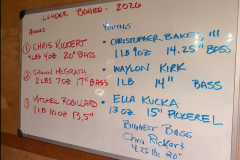 LEADER BOARD - 2026
ADULTS
YOUTHS
① CHRIS RICKERT
4 LB 4oz 20" BASS
② SHAWN McGRATH
2 LBS 7OZ 17" BASS
③ MITCHEL ROBILLARD
1 LB 10 oz 13.5"
• CHRISTOPHER BAKER III
1 LB 9oz 14.25" BASS
• WAYLON KIRK
1 LB 14" BASS
• ELLA KUCKA
13 oz. 15" PICKEREL
BIGGEST BASS
Chris Rickert
4.25 lb. 20"